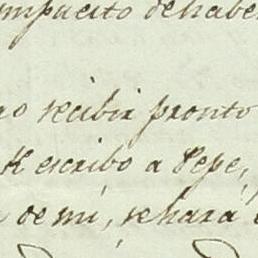 impucito de haber
ro recibir pronto
te escribo a Pepe,
de mi, se hará